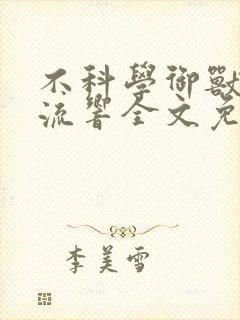 不科學御獸
流響全文免
李美雪